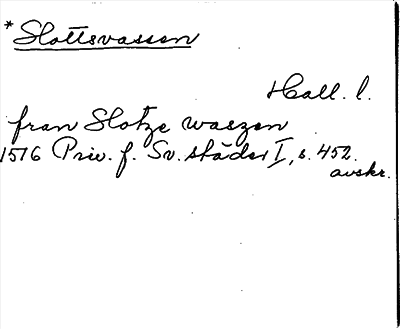 *Slottsvassen
Hall. l.
fran Slotze waszen
1516 Priv. f. Sv. städer I, s. 452.
avskr.